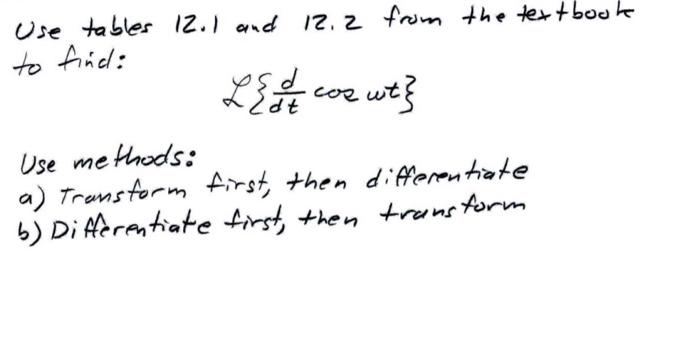 Use tables 12.1 and 12.2 from the textbook
to find:
ℒ{d/dt cos ωt}
Use methods:
a) Transform first, then differentiate
b) Differentiate first, then transform